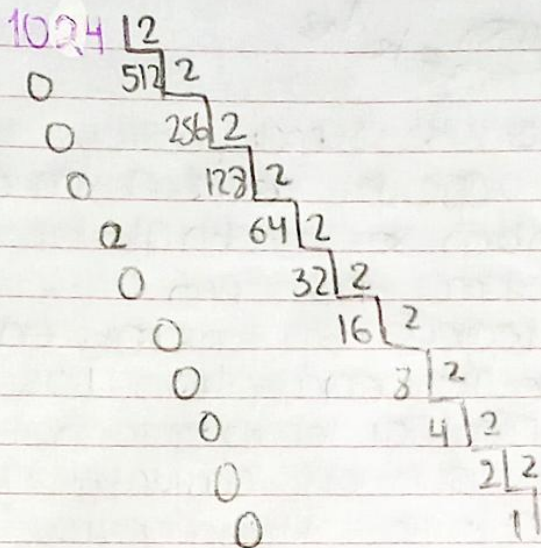 1024 2
0 512 2
0 256 2
0 128 2
0 64 2
0 32 2
0 16 2
0 8 2
0 4 2
0 2 2
0 1